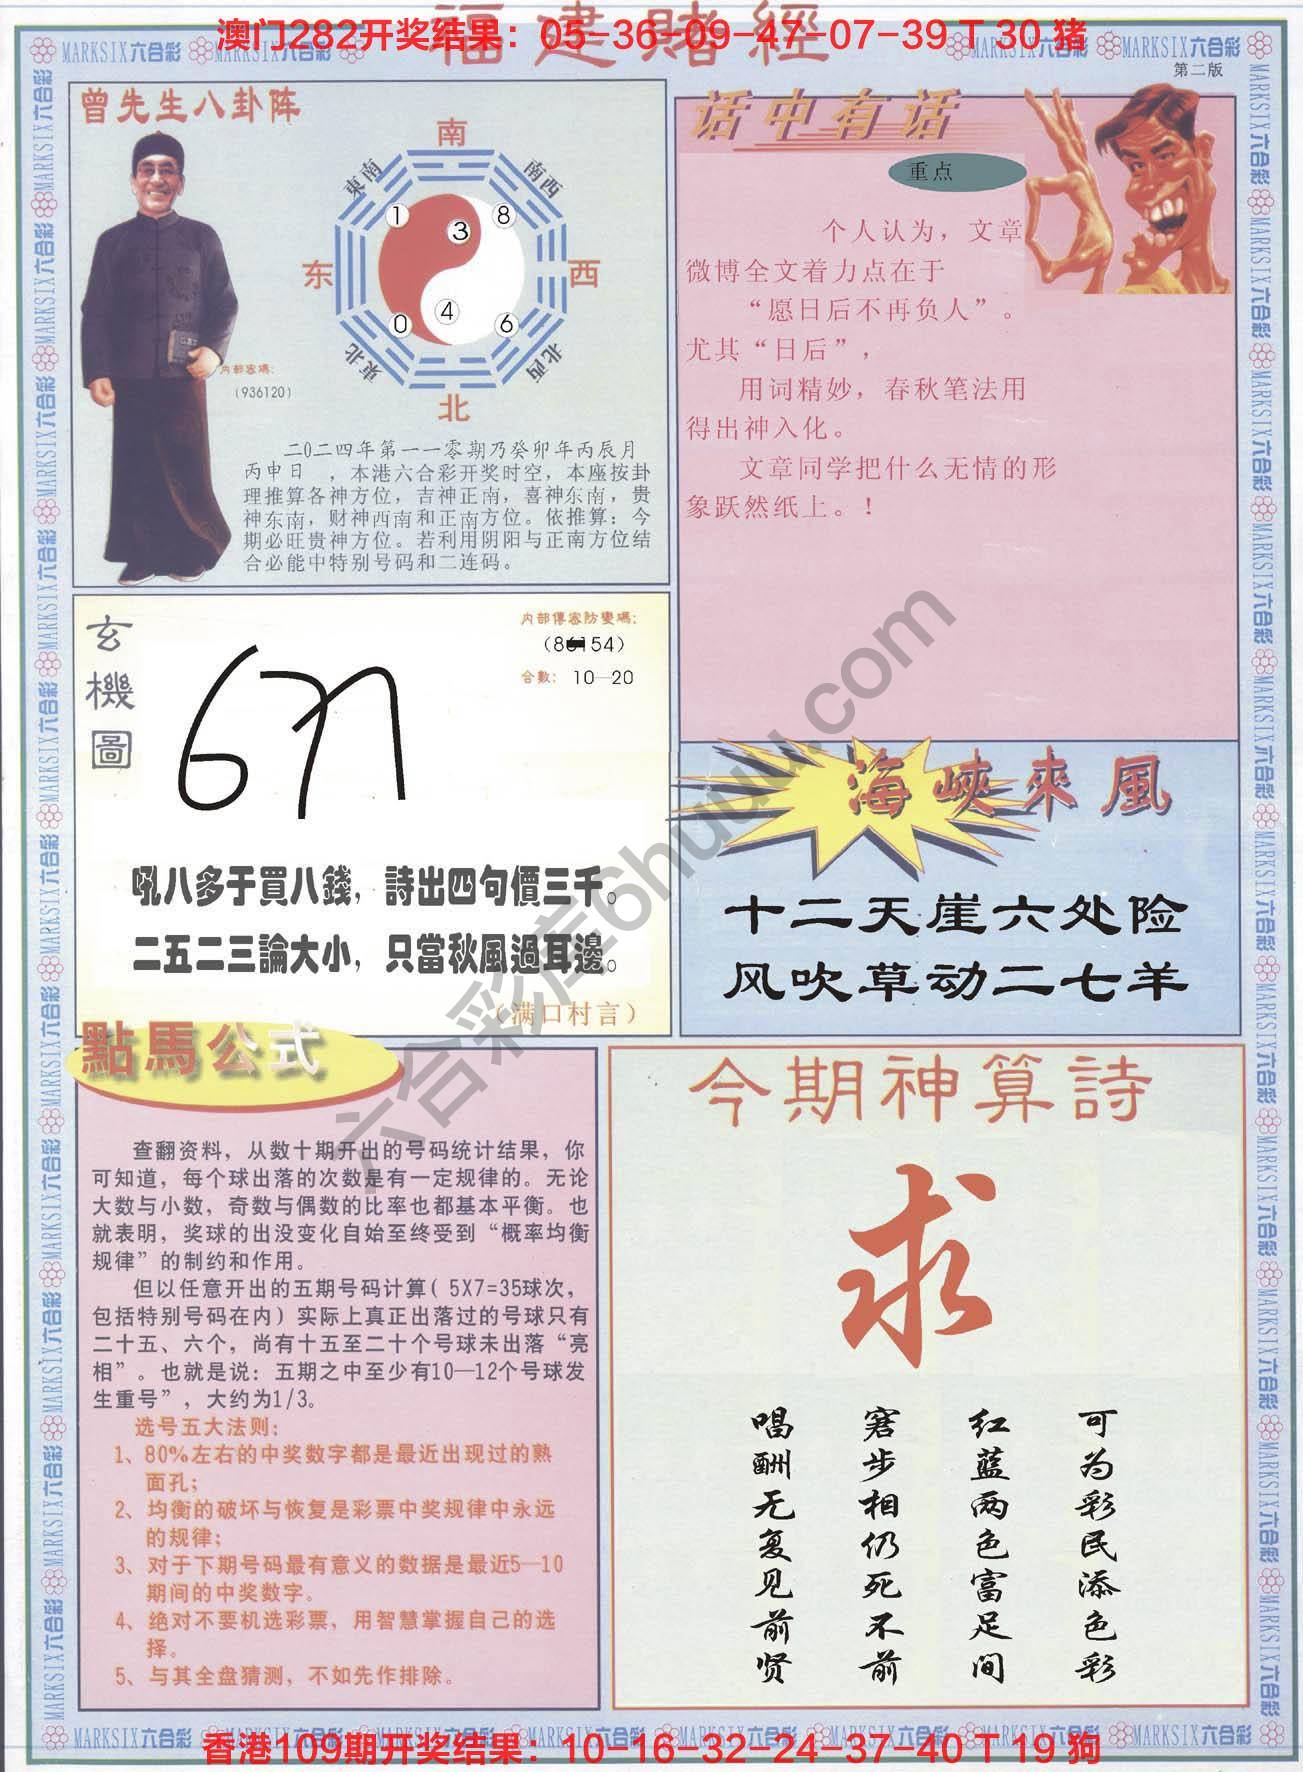 福建賭經
澳门282开奖结果：05-36-09-47-07-39 T 30 猪
MARKSIX六合彩
第二版
曾先生八卦阵
南
東南
南西
东
西
東北
北西
北
1
8
3
4
0
6
内部密碼：
(936120)
二0二四年第一一零期乃癸卯年丙辰月
丙申日　，本港六合彩开奖时空，本座按卦
理推算各神方位，吉神正南，喜神东南，贵
神东南，财神西南和正南方位。依推算：今
期必旺贵神方位。若利用阴阳与正南方位结
合必能中特别号码和二连码。
话中有话
重点
个人认为，文章
微博全文着力点在于
“愿日后不再负人”。
尤其“日后”，
用词精妙，春秋笔法用
得出神入化。
文章同学把什么无情的形
象跃然纸上。！
玄機圖
内部傳密防變碼：
154)
合數： 10—20
吼八多于買八錢，詩出四句價三千。
二五二三論大小，只當秋風過耳邊。
（满口村言）
海峽來風
十二天崖六处险
风吹草动二七羊
點馬公式
查翻资料，从数十期开出的号码统计结果，你
可知道，每个球出落的次数是有一定规律的。无论
大数与小数，奇数与偶数的比率也都基本平衡。也
就表明，奖球的出没变化自始至终受到“概率均衡
规律”的制约和作用。
但以任意开出的五期号码计算( 5X7=35球次，
包括特别号码在内）实际上真正出落过的号球只有
二十五、六个，尚有十五至二十个号球未出落“亮
相”。也就是说：五期之中至少有10—12个号球发
生重号”，大约为1/3。
选号五大法则：
1、80%左右的中奖数字都是最近出现过的熟
面孔；
2、均衡的破坏与恢复是彩票中奖规律中永远
的规律；
3、对于下期号码最有意义的数据是最近5—10
期间的中奖数字。
4、绝对不要机选彩票，用智慧掌握自己的选
择。
5、与其全盘猜测，不如先作排除。
今期神算詩
求
可为彩民添色彩
红蓝两色富足间
窘步相仍死不前
唱酬无复见前贤
六合彩库6huuu.com
香港109期开奖结果：10-16-32-24-37-40 T 19 狗